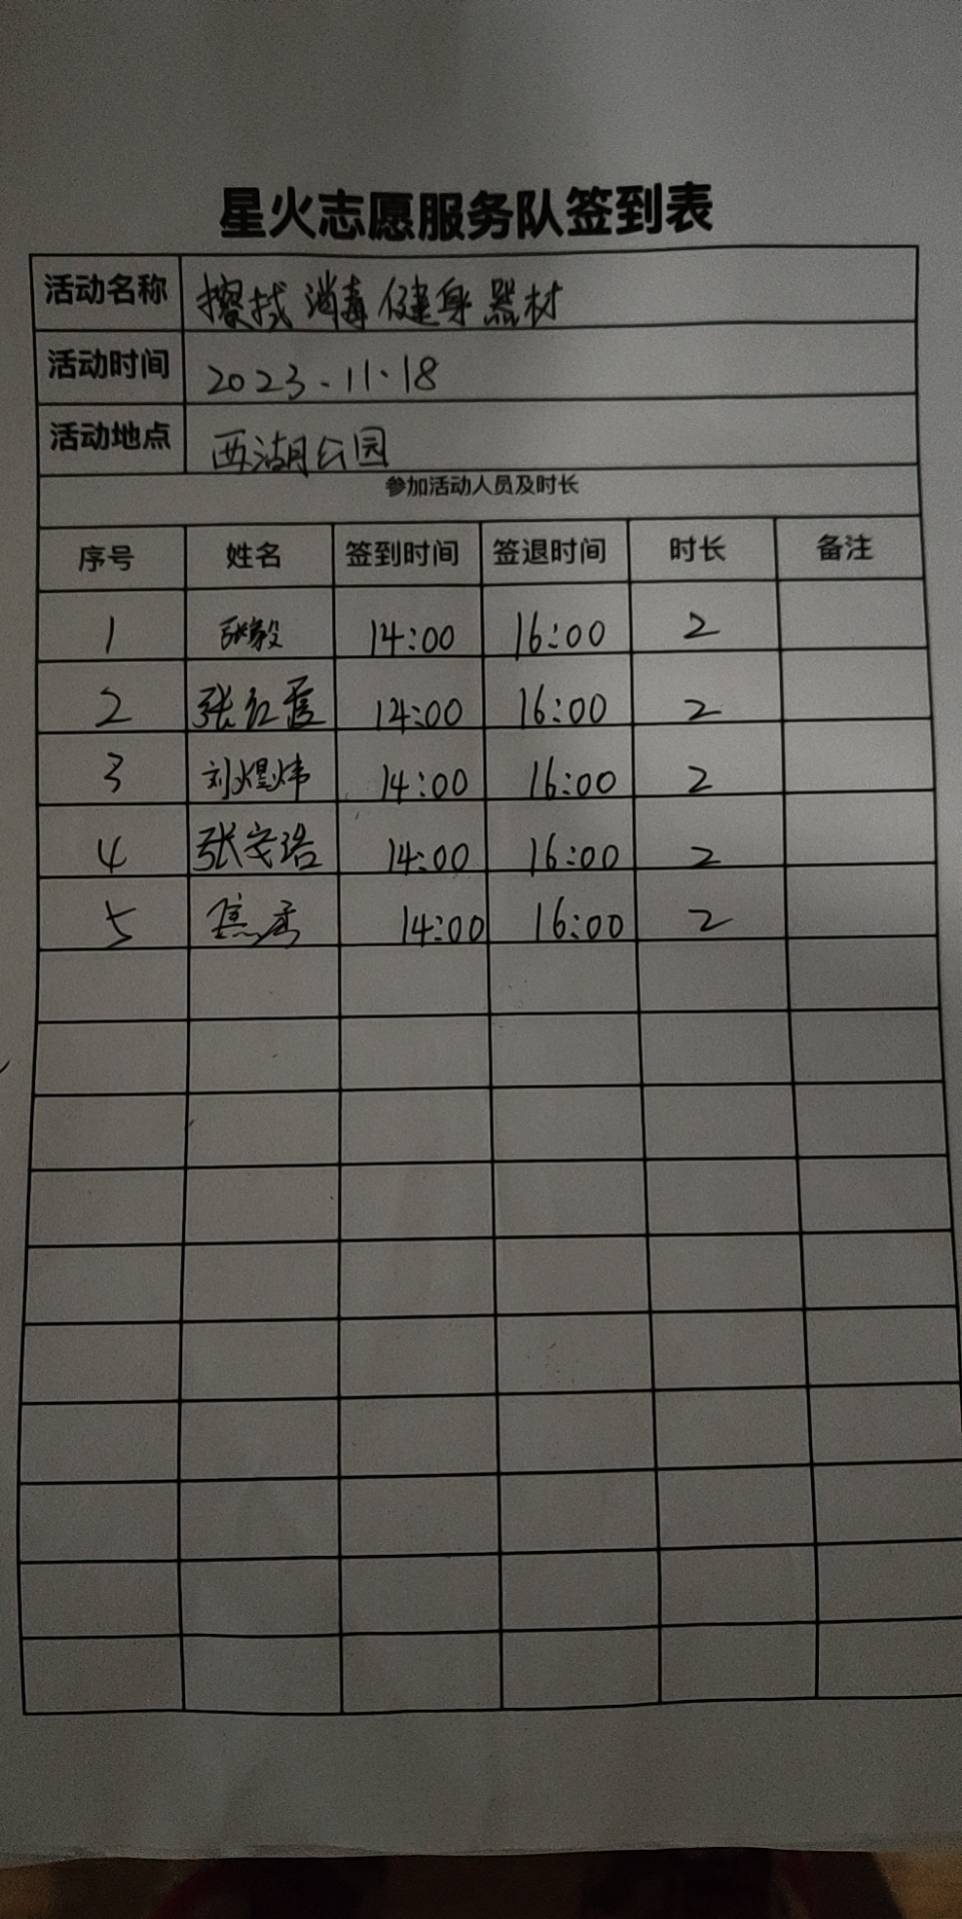 星火志愿服务队签到表
活动名称 擦拭消毒健身器材
活动时间 2023.11.18
活动地点 西湖公园
参加活动人员及时长
序号 姓名 签到时间 签退时间 时长 备注
1 张毅 14:00 16:00 2
2 张红霞 14:00 16:00 2
3 刘煜炜 14:00 16:00 2
4 张 14:00 16:00 2
5 14:00 16:00 2